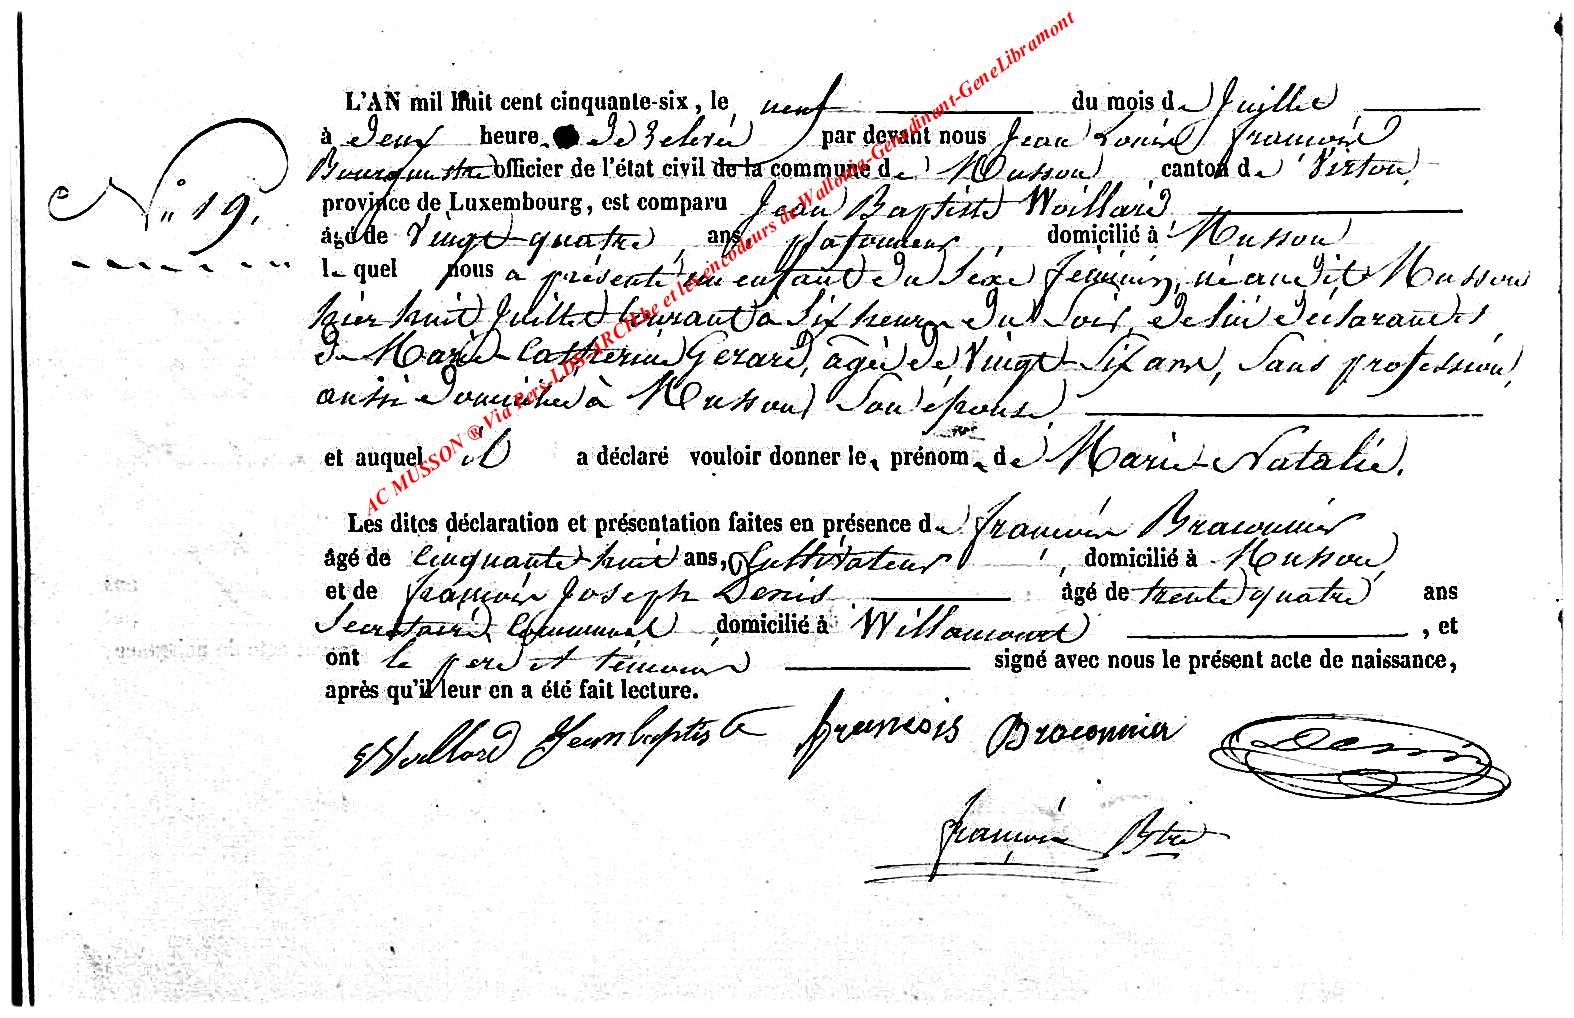 L'AN mil huit cent cinquante-six, le neuf du mois de Juillet
à deux heures de relevée par devant nous Jean Louis François
Bourgmestre officier de l'état civil de la commune de Musson canton de Virton
province de Luxembourg, est comparu Jean Baptiste Woillard
âgé de Vingt-quatre ans, plafonneur, domicilié à Musson
N° 19.
lequel nous a présenté un enfant du sexe féminin, né audit Musson
hier huit Juillet courant à six heures du soir, de lui déclarant et
de Marie-Catherine Gerard, âgée de Vingt-Six ans, sans profession,
aussi domiciliée à Musson son épouse
et auquel il a déclaré vouloir donner les prénoms de Marie-Natalie.
Les dites déclaration et présentation faites en présence de François Braconnier
âgé de cinquante-huit ans, Cultivateur, domicilié à Musson
et de François Joseph Denis âgé de trente quatre ans
Secrétaire Communal domicilié à Willancourt, et
ont le père et témoins signé avec nous le présent acte de naissance,
après qu'il leur en a été fait lecture.
Woillard Jean baptiste françois Braconnier Denis
François Btre
AC MUSSON ® Via Pers-LDS-ARCH.be et les encodeurs de Wallonia-Genedinant-GeneLibramont